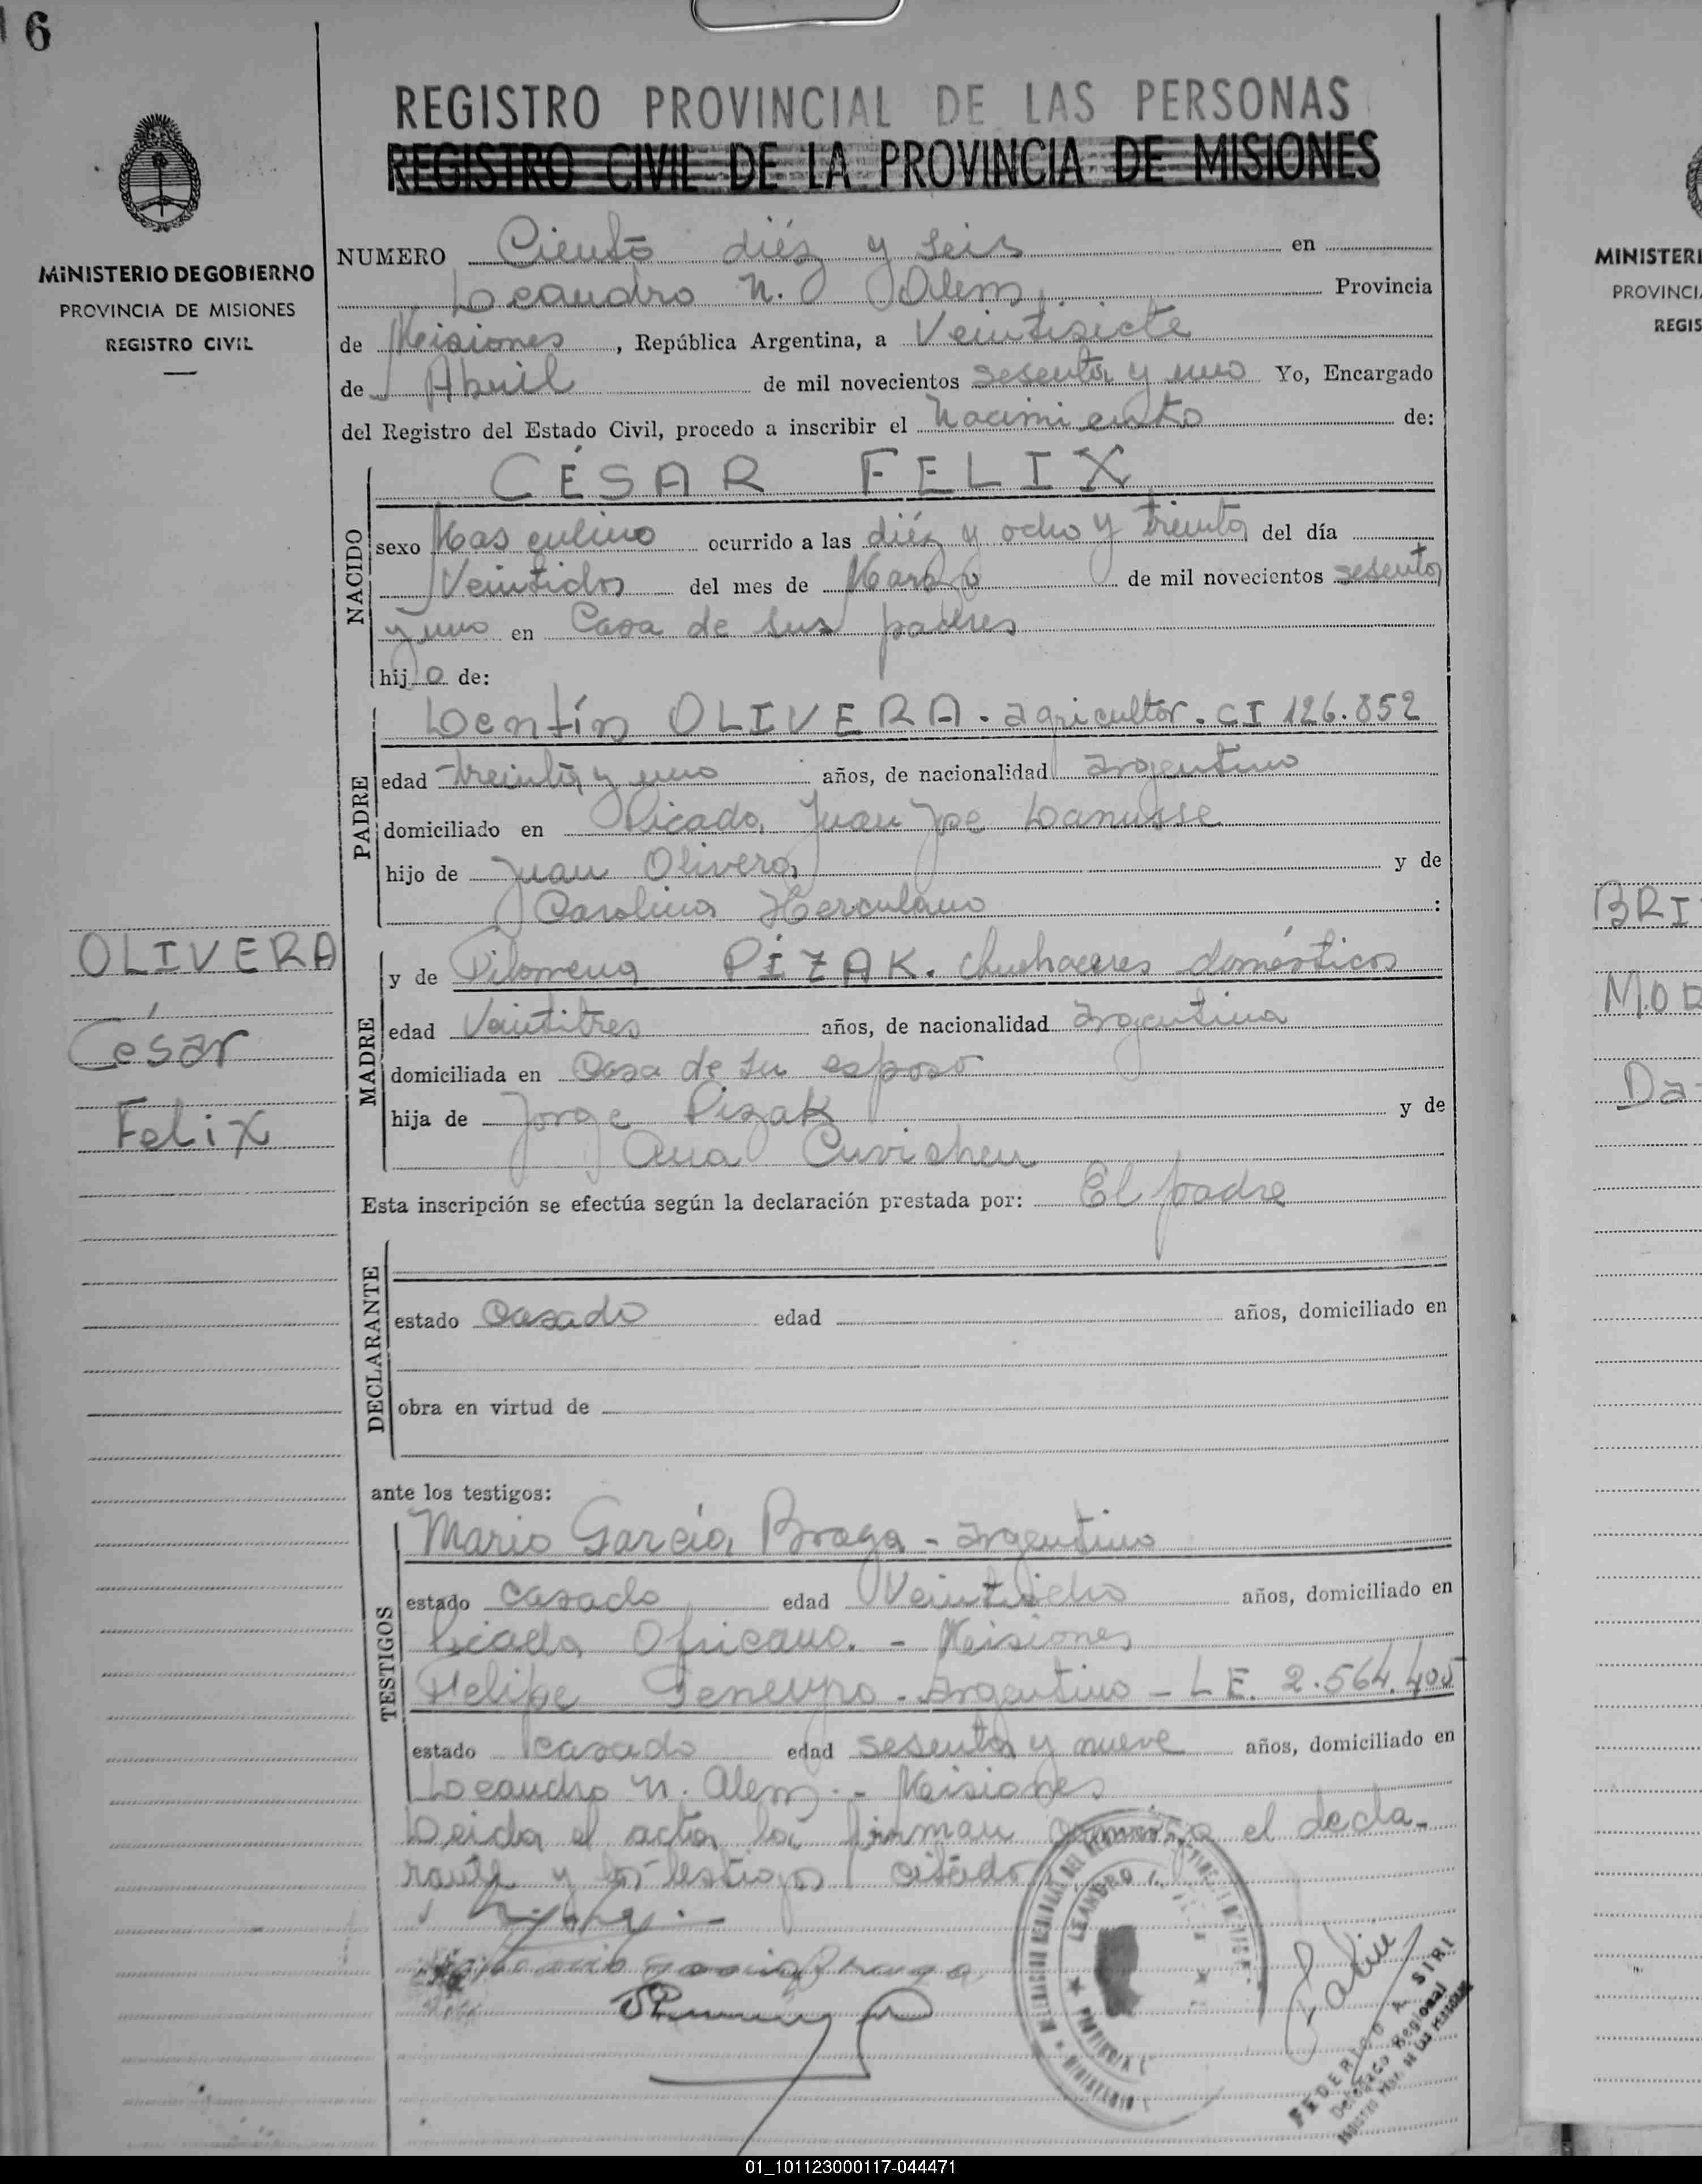 6
REGISTRO PROVINCIAL DE LAS PERSONAS
REGISTRO CIVIL DE LA PROVINCIA DE MISIONES
MINISTERIO DE GOBIERNO
PROVINCIA DE MISIONES
REGISTRO CIVIL
NUMERO Ciento diéz y seis en
Leandro N. Alem. Provincia
de Misiones, República Argentina, a Veintisiete
de Abril de mil novecientos sesenta y uno Yo, Encargado
del Registro del Estado Civil, procedo a inscribir el Nacimiento de:
NACIDO
CÉSAR FELIX
sexo Masculino ocurrido a las diéz y ocho y treinta del día
Veintidos del mes de Marzo de mil novecientos sesenta
y uno en Casa de sus padres
hijo de:
PADRE
OLIVERA. agricultor. CI 126.852
edad treinta y uno años, de nacionalidad argentino
domiciliado en Picada Juan José Lanusse
hijo de Juan Olivera y de
Carolina Herculano :
OLIVERA
César
Felix
MADRE
y de Filomena PIZAK. Quehaceres domésticos
edad Veintitres años, de nacionalidad argentina
domiciliada en Casa de su esposo
hija de Jorge Pizak y de
Ana
Esta inscripción se efectúa según la declaración prestada por: El padre
DECLARANTE
estado Casado edad años, domiciliado en
obra en virtud de
ante los testigos:
TESTIGOS
Mario García Braga - argentino
estado casado edad Veintiocho años, domiciliado en
Picada - Misiones
Felipe - Argentino - L.E. 2.564.405
estado casado edad sesenta y nueve años, domiciliado en
Leandro N. Alem. - Misiones
Leida el acta la firman conmigo el decla-
rante y los testigos citados
LEANDRO
FEDERICO A. SIRI
Delegado Regional
MINISTERI
PROVINCIA
REGIS
BRI
MOR
Da
01_101123000117-044471